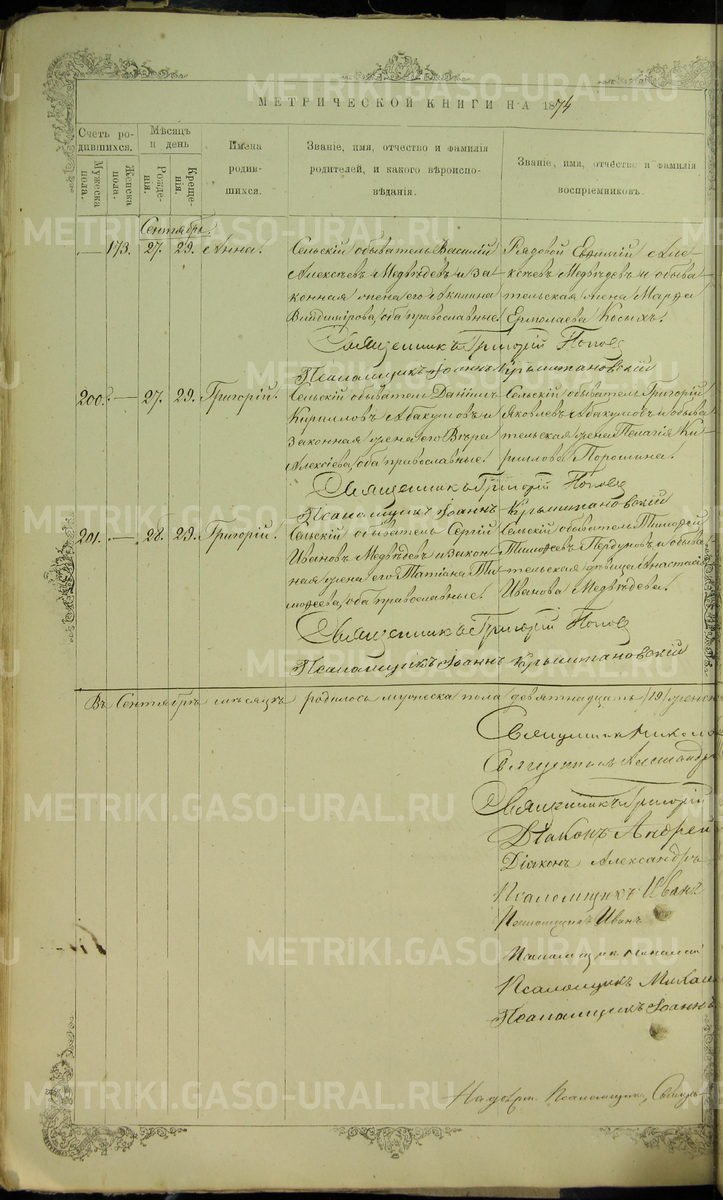 METRIKI.GASO-URAL.RU
МЕТРИЧЕСКОЙ КНИГИ НА 1874
Счетъ родившихся.
Мужеска пола.
Женска пола.
Мѣсяцъ и день
Рожденія.
Крещенія.
Имена родившихся.
Званіе, имя, отчество и фамилія родителей, и какого вѣроисповѣданія.
Званіе, имя, отчество и фамилія воспріемниковъ.
Сентябрь.
— 173. 27. 29. Анна.
Сельскій обыватель Василій
Алексѣевъ Медвѣдевъ и за
конная жена его Акилина
Владимірова, оба православные.
Рядовой Алек
сѣевъ Медвѣдевъ и обыва
тельская жена Марфа
Ермолаева Косыхъ.
Священникъ Григорій Поповъ
Псаломщикъ Іоаннъ
200. — 27. 29. Григорій.
Сельскій обыватель Даніилъ
Кирилловъ Абакумовъ и
законная жена его Вѣра
Алексіева, оба православные.
Сельскій обыватель Григорій
Яковлевъ Абакумовъ и обыва
тельская жена Пелагія Ки
рилова Порошина.
Священникъ Григорій Поповъ
Псаломщикъ Іоаннъ
201. — 28. 29. Григорій.
Сельскій обыватель Сергій
Ивановъ Медвѣдевъ и закон
ная жена его Татіана Ти
мофеева, оба православные.
Сельскій обыватель Тимофей
Тимофеевъ и обыва
тельская дѣвица Анастасія
Иванова Медвѣдева.
Священникъ Григорій Поповъ
Псаломщикъ Іоаннъ
Въ Сентябрѣ мѣсяцѣ родилось мужеска пола девятнадцать /19/ женска
Священникъ Никола
Священникъ Александръ
Священникъ Григорій
Діаконъ Андрей
Діаконъ Александръ
Псаломщикъ Иванъ
Псаломщикъ Иванъ
Псаломщикъ
Псаломщикъ Михаи
Псаломщикъ Іоаннъ
Псаломщикъ